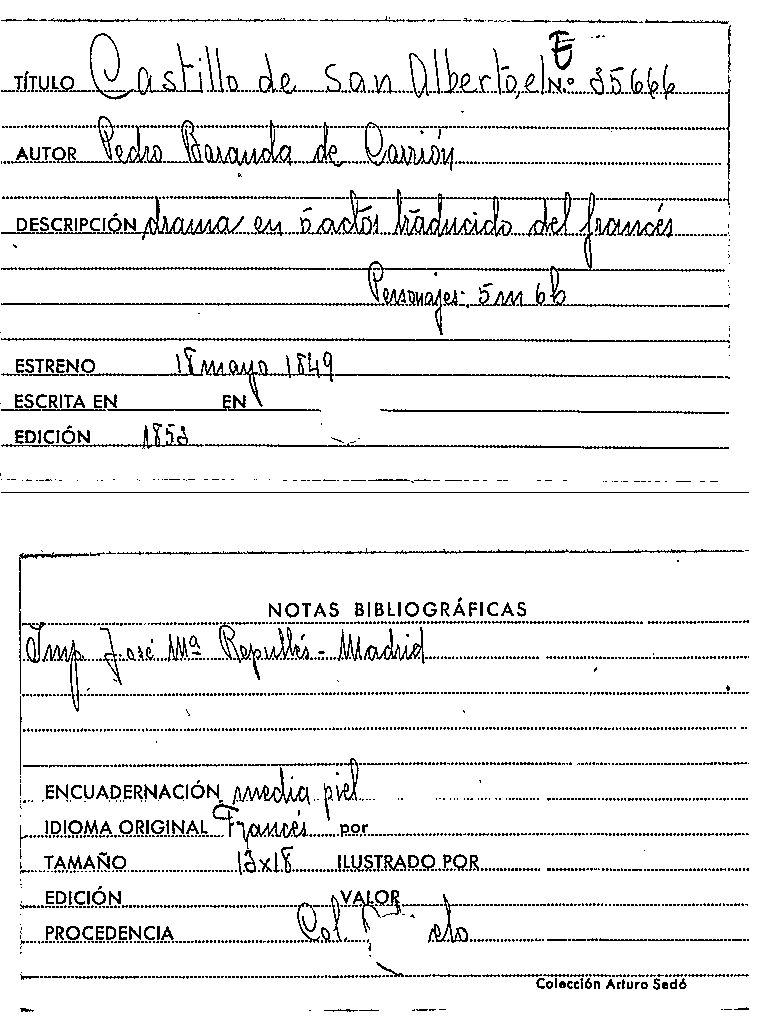 E
TÍTULO Castillo de San Alberto, el N.º 35666
AUTOR Pedro Baranda de Carrión
DESCRIPCIÓN drama en 5 actos traducido del francés
Personajes: 5m 6h
ESTRENO 18 mayo 1849
ESCRITA EN EN
EDICIÓN 1853
NOTAS BIBLIOGRÁFICAS
Imp. José Mª Repullés - Madrid
ENCUADERNACIÓN media piel
IDIOMA ORIGINAL Francés por
TAMAÑO 13x18 ILUSTRADO POR
EDICIÓN VALOR
PROCEDENCIA Col.
Colección Arturo Sedó